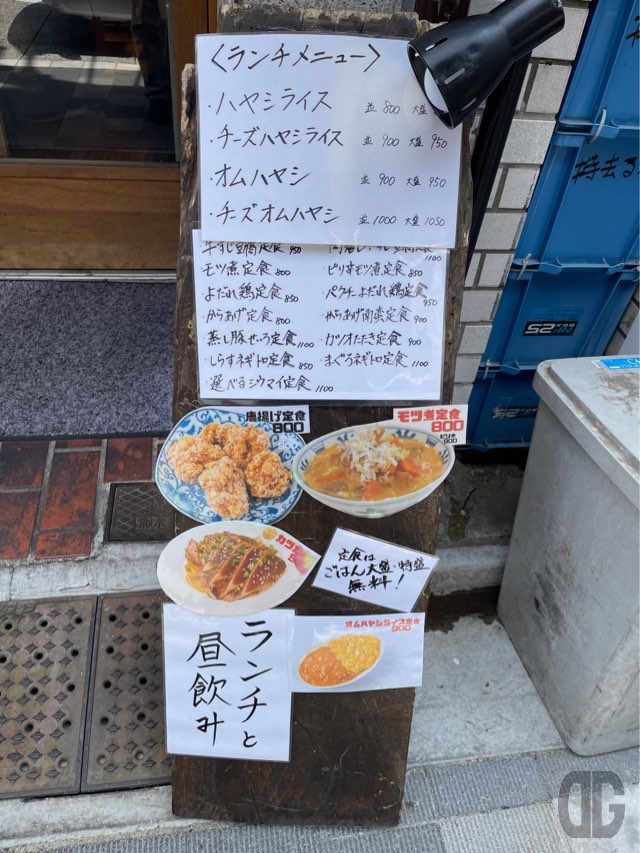 〈ランチメニュー〉
・ハヤシライス 並 800 大盛
・チーズハヤシライス 並 900 大盛 950
・オムハヤシ 並 900 大盛 950
・チーズオムハヤシ 並 1000 大盛 1050
牛すじ豆腐定食 950
モツ煮定食 800 ・ピリ辛モツ煮定食 850
よだれ鶏定食 850 ・パクチーよだれ鶏定食 950
からあげ定食 800 からあげ南蛮定食 900
蒸し豚せいろ定食 1100 ・カツオたたき定食 900
・しらすネギトロ定食 850 ・まぐろネギトロ定食 1100
・選べるシウマイ定食 1100
唐揚げ定食
800
モツ煮定食
800
ピリ辛
900
定食は
ごはん大盛・特盛
無料!
オムハヤシライス定食
900
ランチと
昼飲み
DG